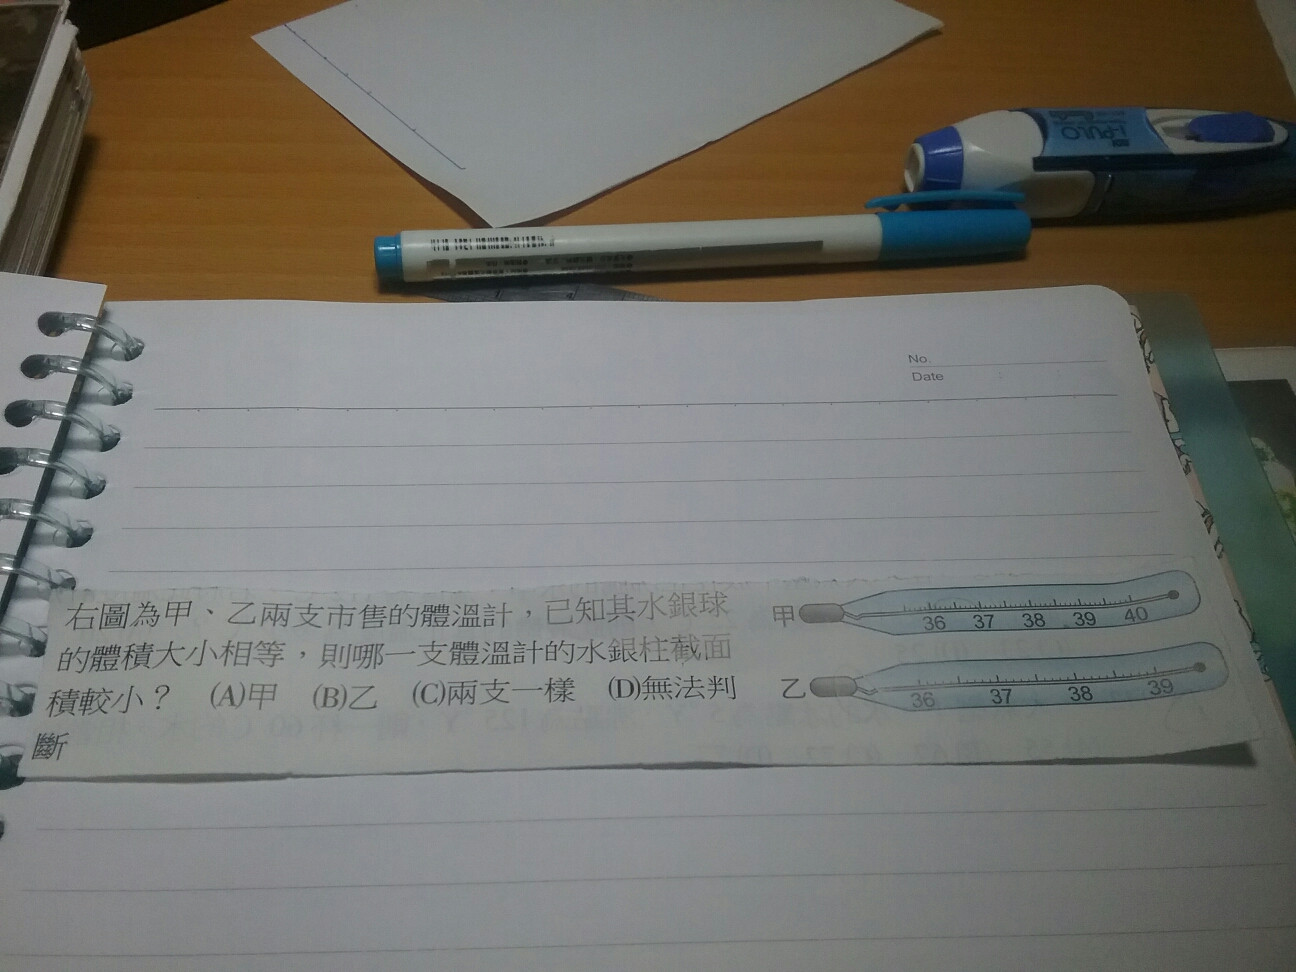 i-PULO
No.
Date
右圖為甲、乙兩支市售的體溫計，已知其水銀球
的體積大小相等，則哪一支體溫計的水銀柱截面
積較小？ (A)甲 (B)乙 (C)兩支一樣 (D)無法判
斷
甲
36 37 38 39 40
乙
36 37 38 39